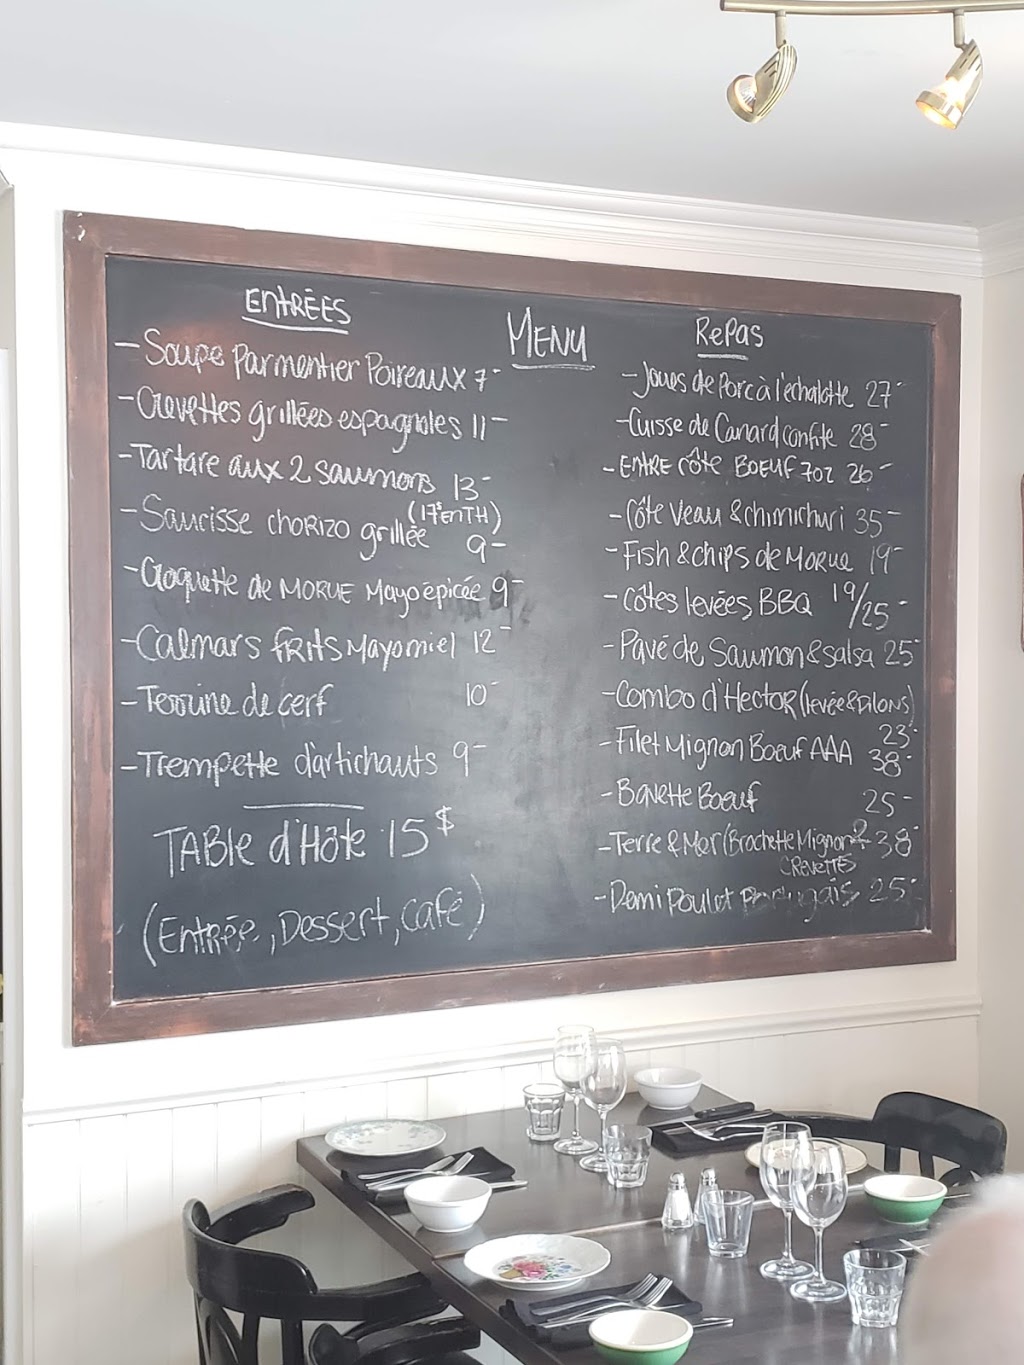 MENU
ENTRÉES
- Soupe Parmentier Poireaux 7-
- Crevettes grillées espagnoles 11-
- Tartare aux 2 saumons 13-
(17$ EN TH)
- Saucisse chorizo grillée 9-
- Croquette de MORUE Mayo épicée 9-
- Calmars frits Mayo miel 12-
- Terrine de cerf 10-
- Trempette d'artichauts 9-
TABLE d'Hôte 15$
(Entrée, Dessert, café)
RePas
- Joues de Porc à l'échalotte 27-
- Cuisse de Canard confite 28-
- ENTRE CÔTE BOEUF 7oz 26-
- Côte Veau & chimichuri 35-
- Fish & chips de MORUE 19-
- Côtes levées BBQ 19/25-
- Pavé de Saumon & salsa 25-
- Combo d'Hector (levée & Pilons)
23-
- Filet Mignon Boeuf AAA 38-
- Bavette Boeuf 25-
- Terre & Mer (Brochette Mignon & 2 38-
CREVETTES
- Demi Poulet Portugais 25-